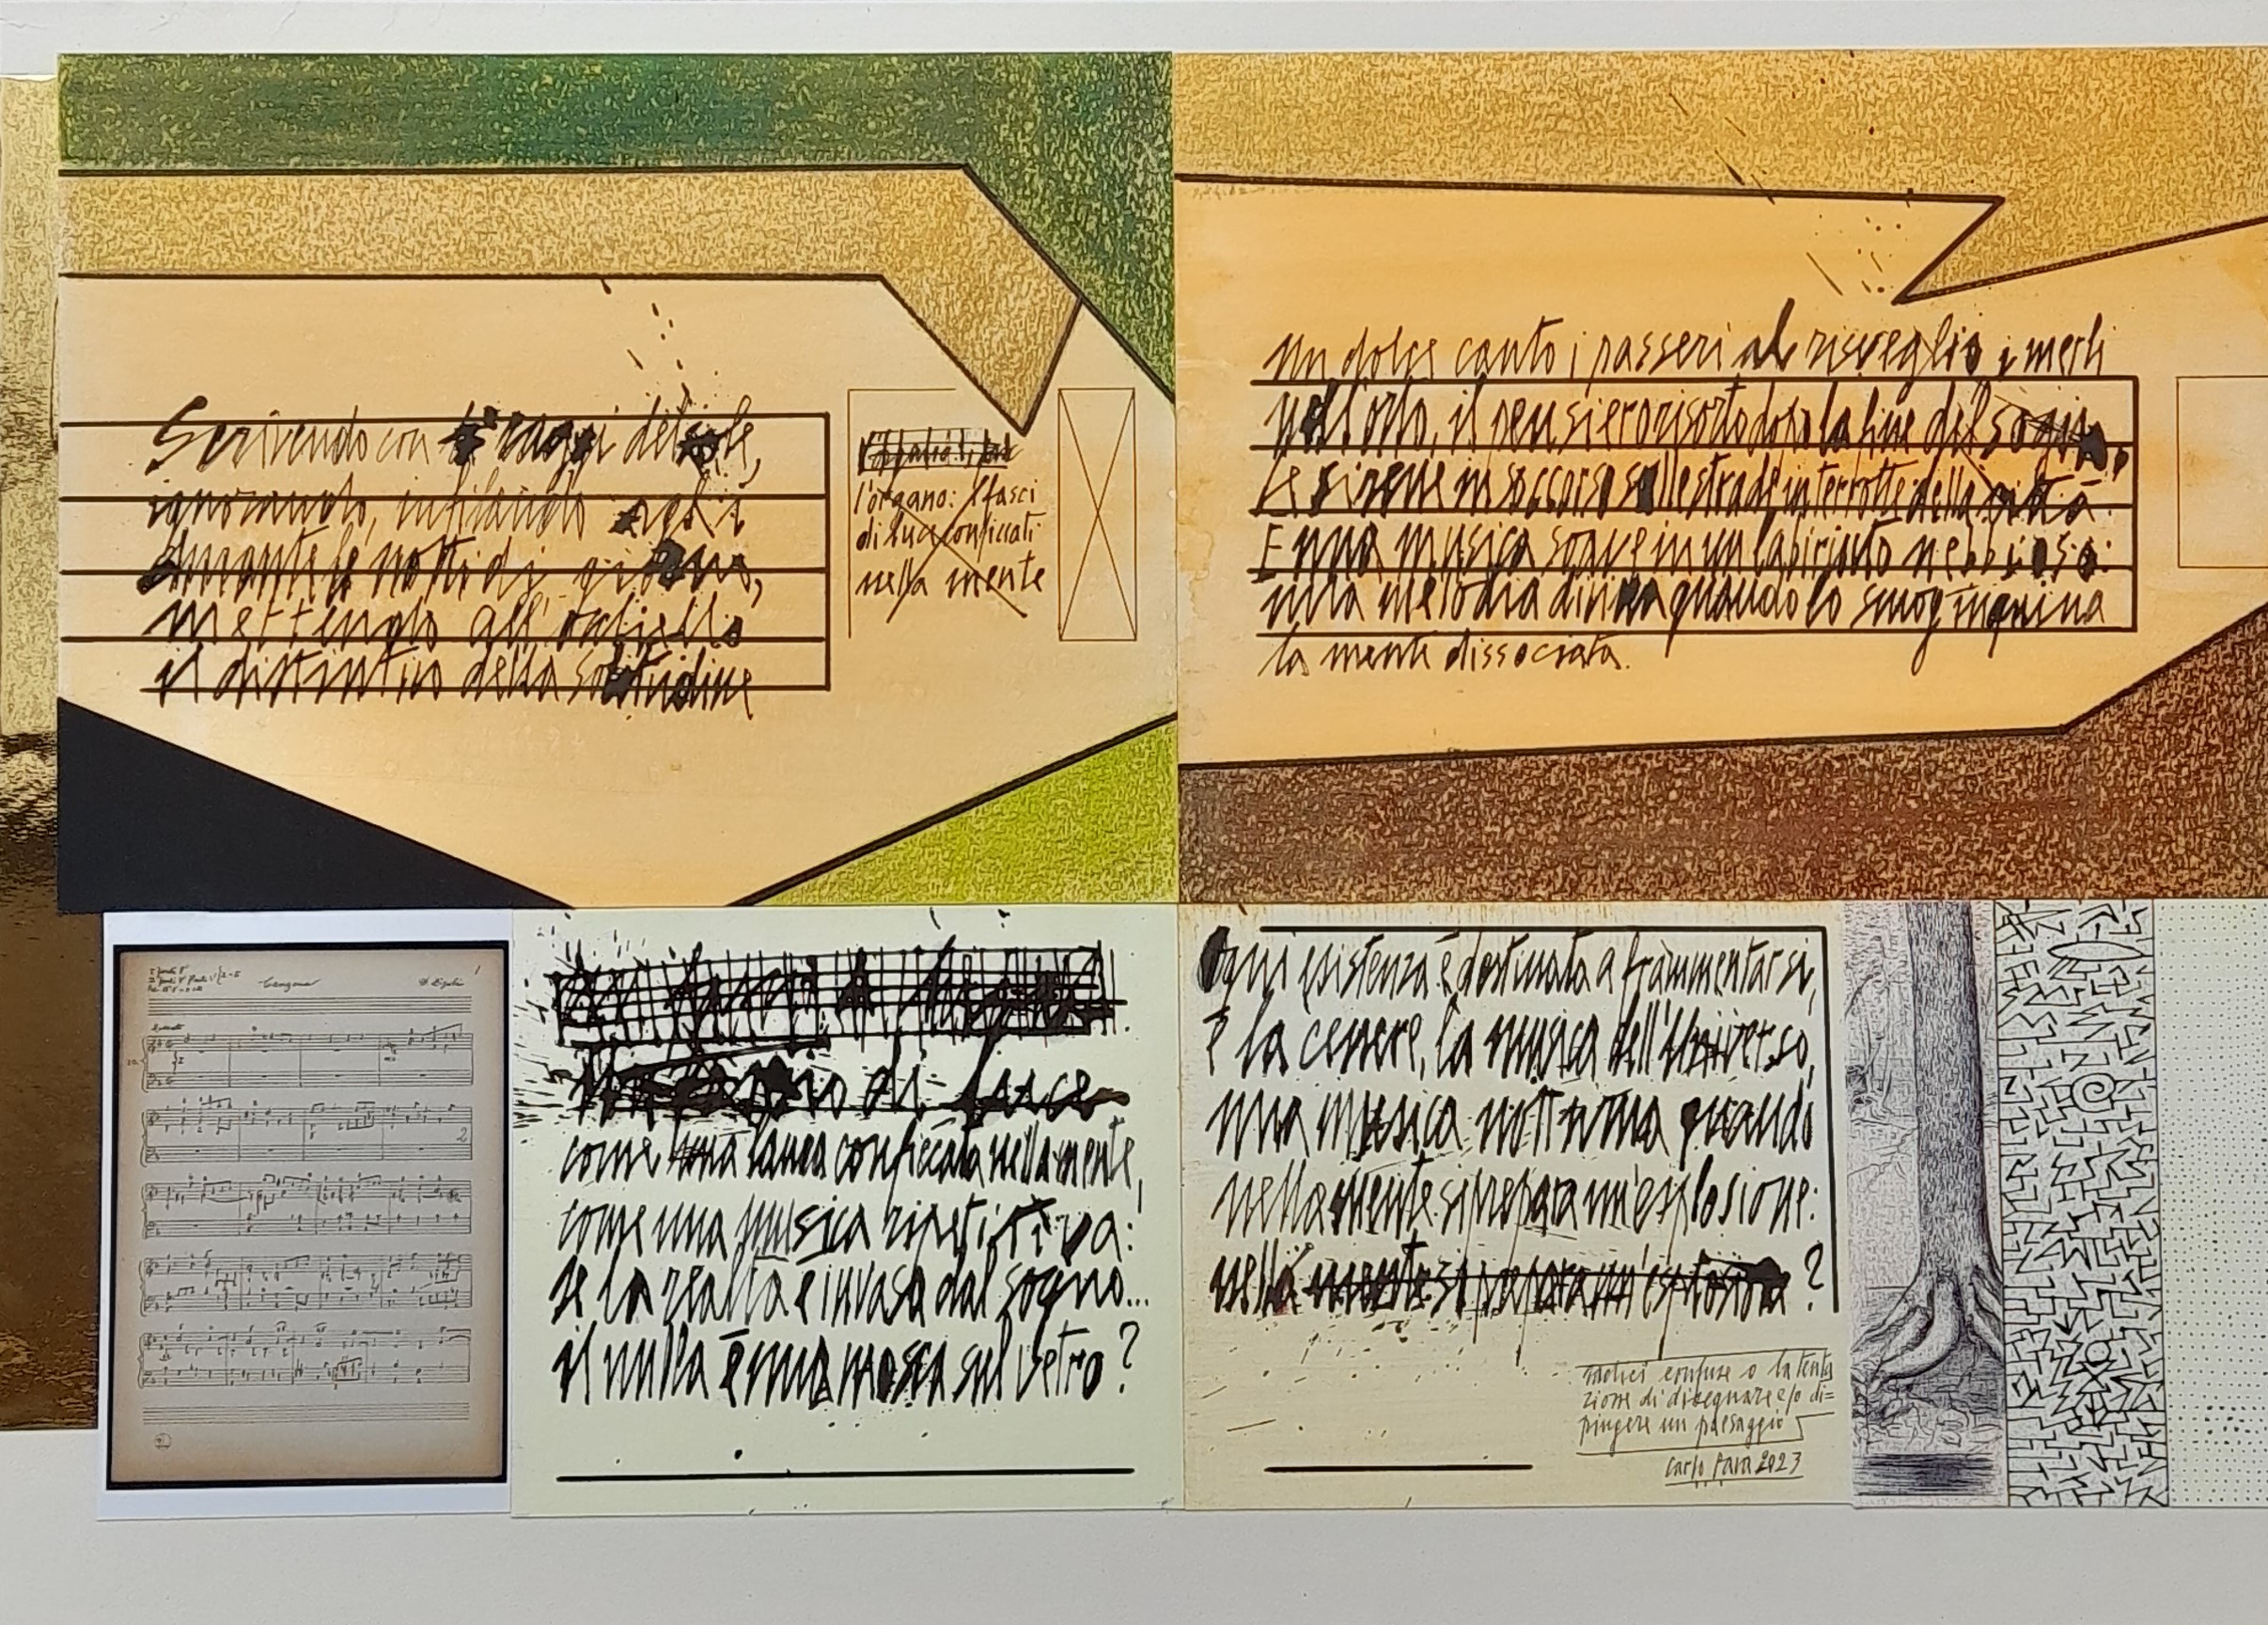 Scrivendo con i raggi del sole,
ignorandolo, infilando aghi
durante le notti di giorno,
mettendo all'occhiello
il distintivo della solitudine
l'organo: I fasci
di luce conficcati
nella mente
un dolce canto i passeri al risveglio i merli
nell'orto, il pensiero risorto dopo la fine del sogno,
Le sirene in soccorso sulle strade interrotte della città:
E una musica soave in un labirinto nebbioso:
una melodia divina quando lo smog inquina
la mente dissociata.
1
di luce
come una lancia conficcata nella mente,
come una musica ripetitiva:
se la realtà è invasa dal sogno...
il nulla è una mosca sul vetro?
Ogni esistenza è destinata a frammentarsi,
è la cenere, la musica dell'Universo,
una musica notturna quando
nella mente si prepara un'esplosione:
nella mente si prepara un'esplosione?
radici confuse o la tenta
zione di disegnare e/o di=
pingere un paesaggio
Carlo Fava 2023